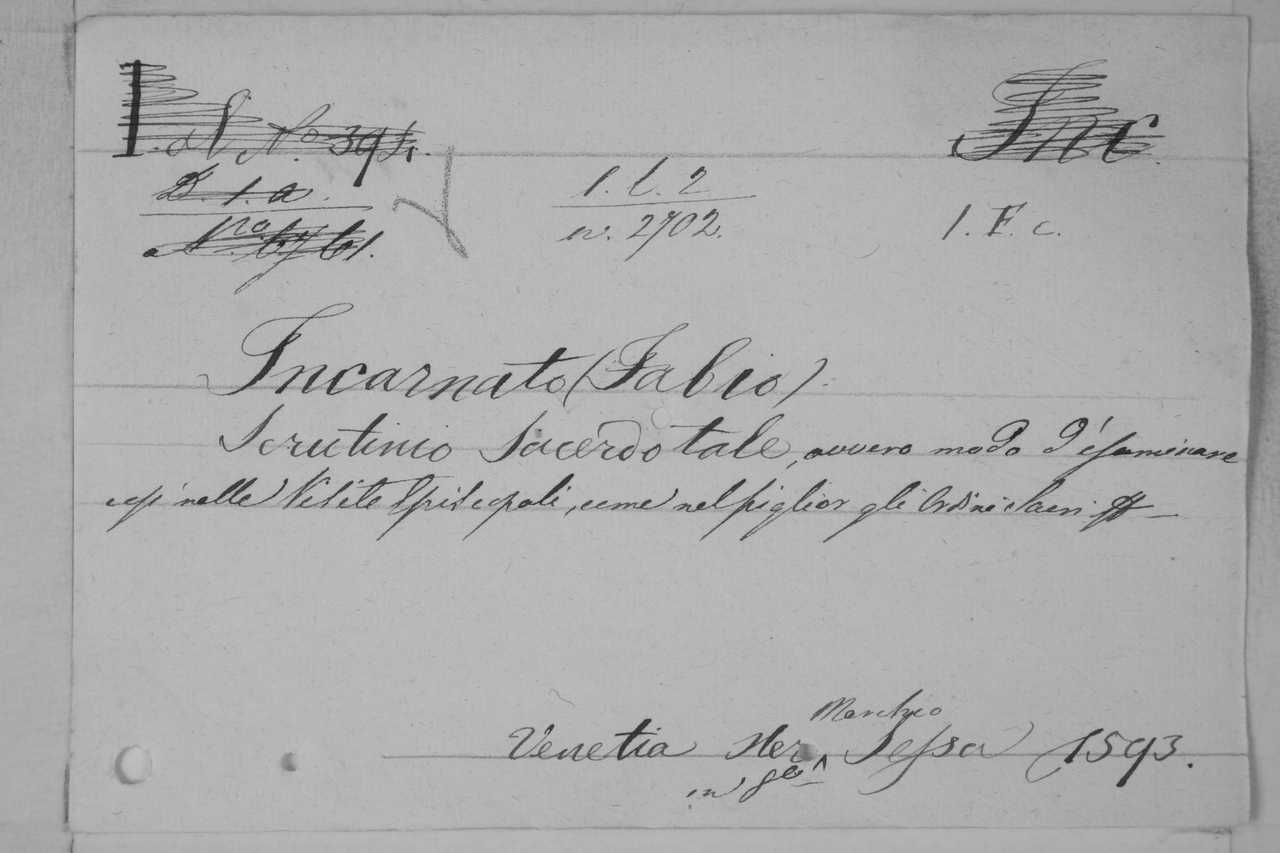 I. N N.º 394. Inc
D. 1. a. 1. b. 2
N.ro 6761. n. 2702. 1. F. c.
Incarnato (Fabio)
Scrutinio Sacerdotale, ovvero modo d'esaminare
così nelle Visite Episcopali, come nel pigliar gli Ordini Sacri
Marchio
Venetia Her ^ Sessa 1593.
in 8.º